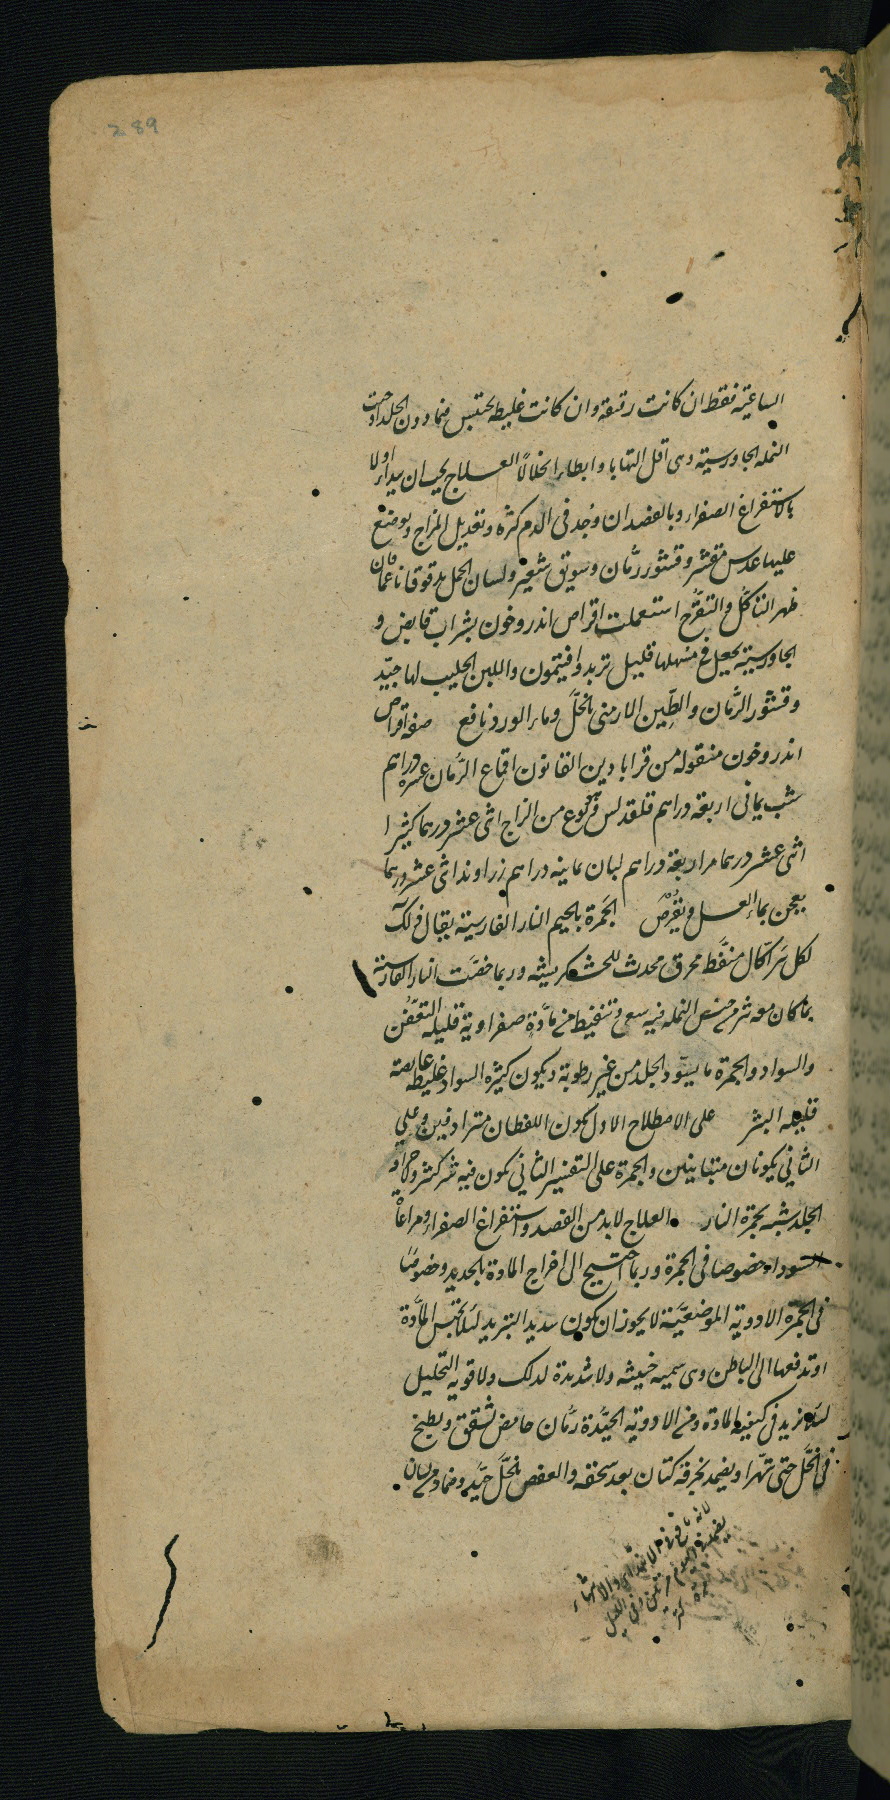 289
الساعية فقط ان كانت رقيقة وان كانت غليظة تحتبس فيما دون الجلد احدثت
النملة الجاورسية وهى اقل التهابا وابطاء انحلالًا العلاج يجب ان يبداء اولا
باستفراغ الصفراء وبالفصد ان وُجد فى الدم كثرة وتعديل المزاج ويوضع
عليها عدس مقشر وقشور رمّان وسويق شعير ولسان الحمل مدقوقا ناعما فان
ظهر التاكّل والتقرّح استعملت اقراص اندروخون بشراب قابض و
الجاورسية يجعل فى مسهلها قليل تربد وافيتمون واللبن الحليب لها جيّد
وقشور الرمّان والطّين الارمنى بالخلّ وماء الورد نافع صفة اقراص
اندروخون منقولة من قرابادين القانون اقماع الرّمان عشرة دراهم
شب يمانى اربعة دراهم قلقديس من الزاج اثنى عشر درهما كثيرا
اثنى عشر درهما مر اربعة دراهم لبان ثمانية دراهم زراوند اثنى عشر درهما
يعجن بماء العسل ويقرّص الجَمرة بالجيم النار الفارسية يقال ذلك
لكل بثر اكّال منفّط محرق محدث للخشكريشه وربما خصّت النار الفارسية
بما كان معه بثر من جنس النملة فيه سعى وتنفيط من مادّة صفراوية قليلة التعفّن
والسواد والجمرة ما يسوّد الجلد من غير رطوبة ويكون كثيرة السواد غليظة غايصة
قليلة البثر على الاصطلاح الاول يكون اللفظان مترادفين وعلى
الثانى يكونان متباينين والجمرة على التفسير الثانى يكون فيه بثر كثير ولاحراقه
الجلد شبه بجمرة النار العلاج لابد من الفصد واستفراغ الصفراء ومراعاة
السوداء خصوصا فى الجمرة وربما احتيج الى اخراج المادة بالحديد وخصوصًا
فى الجمرة الادوية الموضعيّة لايجوز ان يكون شديد التبريد لئلا يحتبس المادّة
او تدفعها الى الباطن وهى سمية خبيثة ولا شديدة لذلك ولا قوية التحليل
لئلا يزيد فى كيفية المادة ومن الادوية الجيّدة رمّان حامض تُشقّق ويطبخ
فى الخلّ حتى تهرّا ويضمد بخرقة كتان بعد سحقه والعفص بالخلّ جيّد وضماد من لسان